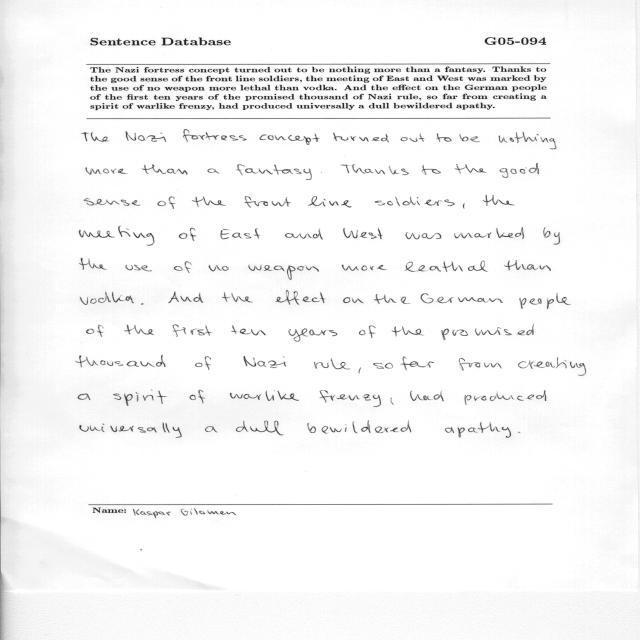 Sentence Database G05-094
The Nazi fortress concept turned out to be nothing more than a fantasy. Thanks to
the good sense of the front line soldiers, the meeting of East and West was marked by
the use of no weapon more lethal than vodka. And the effect on the German people
of the first ten years of the promised thousand of Nazi rule, so far from creating a
spirit of warlike frenzy, had produced universally a dull bewildered apathy.
The Nazi fortress concept turned out to be nothing
more than a fantasy. Thanks to the good
sense of the front line soldiers, the
meeting of East and West was marked by
the use of no weapon more leathal than
vodka. And the effect on the German people
of the first ten years of the promised
thousand of Nazi rule, so far from creating
a spirit of warlike frenzy, had produced
universally a dull bewildered apathy.
Name: Kaspar